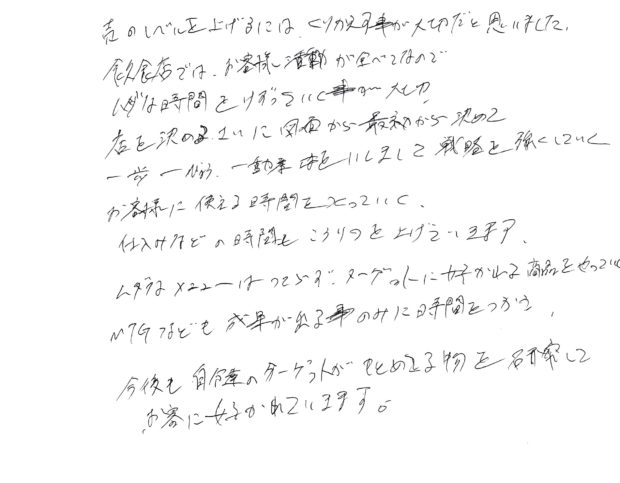 のレベルを上げるには、くりかえす事が大切だと思いました。
飲食店では、お客様活動が全べてなので
ムダな時間をけずっていく事が大切
店を決める 図面から最初から決めて
一歩 一動 戦略を強くしていく
お客様に使える時間をとっていく、
仕込みなどの時間も こうりつを上げています。
ムダなメニューはつくらず、ターゲットに好かれる商品をやってい
MTGなども成果が出る事のみに時間をつかう、
今後も自分のターゲットがもとめてる物を して
お客に好かれていきます。